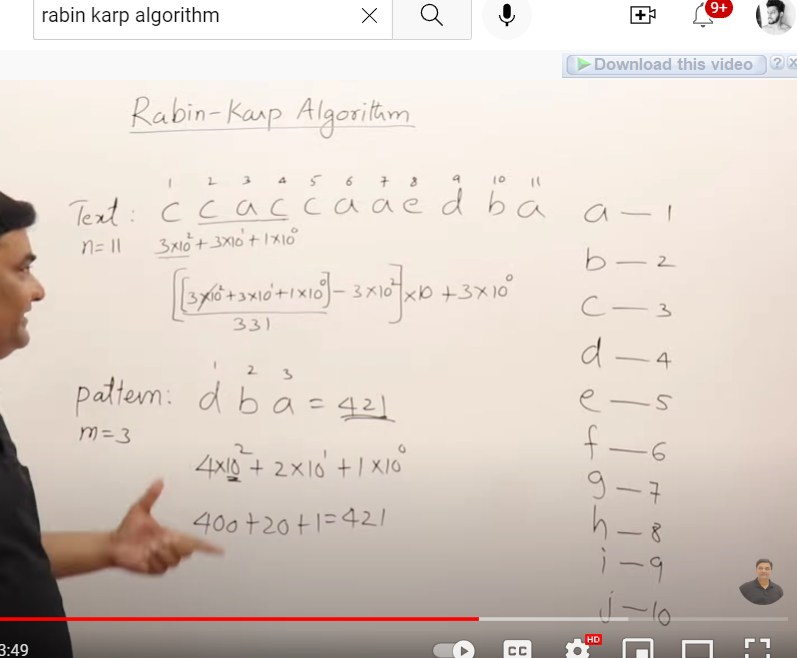 rabin karp algorithm
9+
Download this video ? x
Rabin-Karp Algorithm
1 2 3 4 5 6 7 8 9 10 11
Text: c c a c c a a e d b a
n=11 3×10² + 3×10¹ + 1×10⁰
[[3×10²+3×10¹+1×10⁰] - 3×10²]×10 + 3×10⁰
331
1 2 3
pattern: d b a = 421
m=3
4×10² + 2×10¹ + 1×10⁰
400+20+1=421
a — 1
b — 2
c — 3
d — 4
e — 5
f — 6
g — 7
h — 8
i — 9
j — 10
3:49
CC
HD